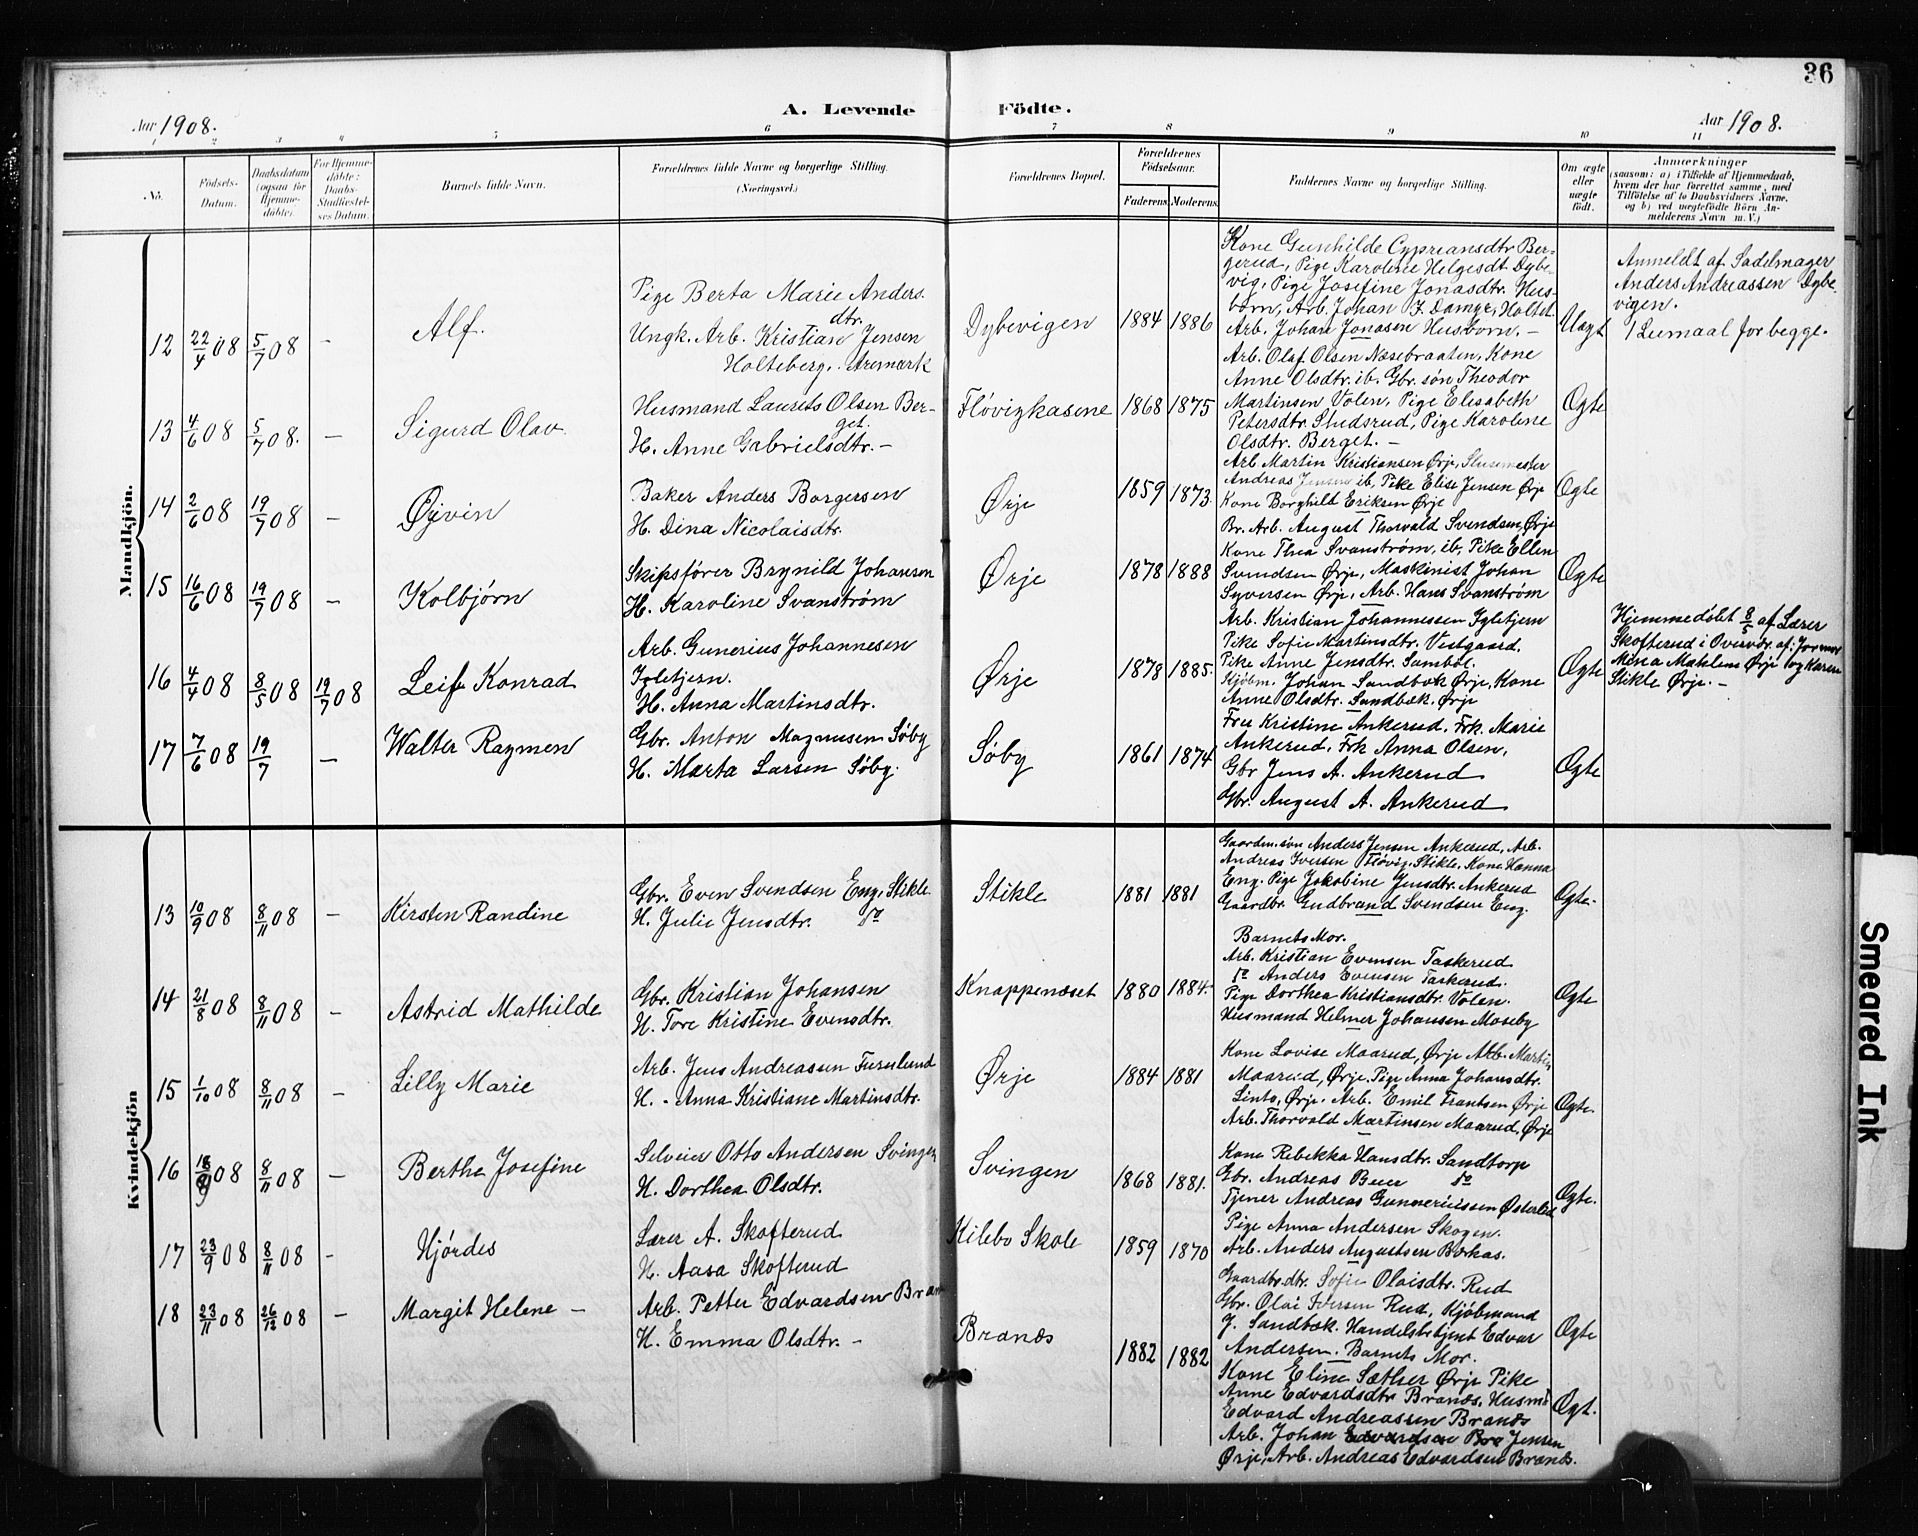 36
A. Levende Födte.
Aar 1908.
Aar 1908.
1 2 3 4 5 6 7 8 9 10 11
No.
Födsels-Datum.
Daabsdatum (ogsaa for Hjemme-döbte).
For Hjemme-döbte: Daabs-Stadfæstel-ses Datum.
Barnets fulde Navn.
Forældrenes fulde Navne og borgerlige Stilling.
(Næringsvei.)
Forældrenes Bopæl.
Forældrenes Födselsaar.
Faderens. Moderens.
Faddernes Navne og borgerlige Stilling.
Om ægte eller uægte födt.
Anmærkninger
(saasom: a) i Tilfælde af Hjemmedaab,
hvem der har forrettet samme, med
Tilföielse af to Daabsvidners Navne,
og b) ved uægtefödte Börn An-
melderens Navn m. V.)
Mandkjön.
12 22/4 08 5/7 08 – Alf.
Pige Berta Marie Anders
dtr.
Ungk. Arb. Kristian Jensen
Holteberg, Aremark
Dybevigen 1884 1886
Kone Gunhilde Cypriansdtr Ber-
gerud, Pige Karoline Helgesdt Dybe-
vig, Pige Josefine Jonasdtr. Hus-
born, Arb. Johan F. Damge, Holtet
Arb. Johan Jonasen Husborn. –
Uægt
Anmeldt af Sadelmager
Anders Andreassen Dybe-
vigen.
1 Leimaal for begge.
13 4/6 08 5/7 08. – Sigurd Olav
Husmand Laurits Olsen Ber-
get.
H. Anne Gabrielsdtr. –
Fløvigkasene 1868 1875
Arb. Olaf Olsen Næsebraaten, Kone
Anne Olsdtr. ib. Gbr. søn Theodor
Martinsen Volen, Pige Elisabeth
Petersdtr. Studsrud, Pige Karoline
Olsdtr. Berget. –
Ægte
14 2/6 08 19/7 08 – Øjvin
Baker Anders Borgersen
H. Dina Nicolaisdtr.
Ørje 1859 1873
Arb. Martin Kristiansen Ørje, Slusemester
Andreas Jensen ib, Pike Elise Jensen Ørje
Kone Borghilt Eriksen Ørje
Br. Arb. August Thorvald Svendsen, Ørje
Ægte
15 16/6 08 19/7 08 – Kolbjørn
Skipsfører Brynild Johansen
H. Karoline Svanstrøm
Ørje 1878 1888
Kone Thea Svanstrøm, ib, Pike Ellen
Svendsen Ørje, Maskinist Johan
Syversen Ørje, Arb. Hans Svanstrøm
Ægte
16 4/4 08 8/5 08 19/7 08 Leif Konrad
Arb. Gunerius Johannesen
Igletjern.
H. Anna Martinsdtr.
Ørje 1878 1885.
Arb. Kristian Johannessen Igletjern
Pike Sofie Martinsdtr. Vestgaard.
Pike Anne Jensdtr. Sambøl.
Kjøbm. Johan Sandbæk Ørje, Kone
Anne Olsdtr. Sandbæk, Ørje
Ægte
Hjemmedøbt 8/5 af Lærer
Skofterud i Overvær. af: Jormor
Mina Mahlens Ørje og Karen
Stikle Ørje. –
17 7/6 08 19/7 – Walter Ragmen
Gbr. Anton Magnusen Søby
H. Marta Larsen Søby.
Søby 1861 1874
Fru Kristine Ankerud, Frk. Marie
Ankerud, Frk Anna Olsen,
Gbr Jens A. Ankerud
Gbr. August A. Ankerud
Ægte
Kvindekjön
13 10/9 08 8/11 08 – Kirsten Randine
Gbr. Even Svendsen Eng, Stikle
H. Julie Jensdtr. do
Stikle 1881 1881
Gaardm.søn Anders Jensen Ankerud, Arb.
Andreas Iversen Fløvig, Stikle, Kone Hanna
Eng, Pige Jakobine Jensdtr. Ankerud
Gaardbr. Gudbrand Svendsen Eng.
Ægte.
14 21/8 08 8/11 08 – Astrid Mathilde
Gbr. Kristian Johansen
H. Tore Kristine Evensdtr.
Knappenæset 1880 1884.
Barnets Mor.
Arb. Kristian Evensen Taskerud
do Anders Evensen Taskerud.
Pige Dorthea Kristiansdtr. Volen.
Husmand Helmer Johansen Moseby
Ægte
15 1/10 08 8/11 08 – Lilly Marie
Arb. Jens Andreassen Furulund
H. Anna Kristiane Martinsdtr.
Ørje 1884 1881
Kone Lovise Maarud, Ørje Arb. Martin
Maarud, Ørje. Pige Anna Johansdtr.
Linto, Ørje. Arb. Emil Frantsen Ørje
Arb. Thorvald Martinsen Maarud, Ørje
Ægte.
16 18/9 08 8/11 08 – Berthe Josefine
Selveier Otto Andersen Svingen
H. Dorthea Olsdtr.
Svingen 1868 1881.
Kone Rebekka Hansdtr. Sandtorp
Gbr. Andreas Beier do
Tjener Andreas Gunneriussen Østerlid
Pige Anna Andersen Skogen.
Arb. Anders Augustsen Bækas.
Ægte.
17 23/9 08 8/11 08 – Hjørdes
Lærer A. Skofterud
H. Aasa Skofterud
Kilebo Skole 1859 1870
Gaardbr.dtr. Sofie Olaisdtr. Rud
Gbr. Olai Iversen Rud, Kjøbmand
J. Sandbæk. Handelsbetjent Edvar
Andersen. Barnets Mor.
Ægte
18 23/11 08 26/12 08 – Margit Helene –
Arb. Petter Edvardsen Bræn
H. Emma Olsdtr. –
Brænes 1882 1882
Kone Eline Sæther Ørje Pike
Anne Edvardsdtr Brænes, Husm
Edvard Andreassen Brænes
Arb. Johan Edvardsen Bre Jensen
Ørje, Arb. Andreas Edvardsen Brænes.
Ægt.
Smeared Ink